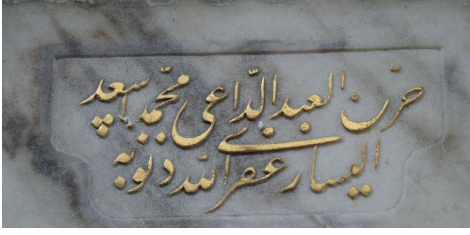 حرّره العبد الدّاعی محمّد اسعد
الیساری غفر اللّه ذنوبه